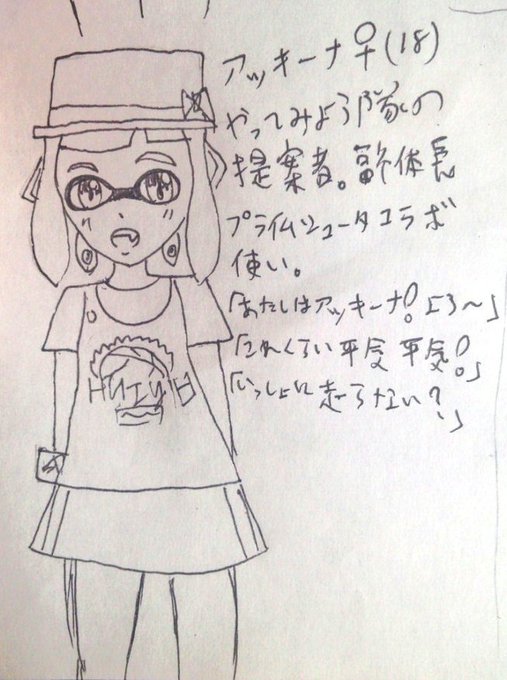 アッキーナ♀(18)
やってみよう隊の
提案者。副体長
プライムシューターコラボ
使い。
「あたしはアッキーナ!よろ〜」
「これくらい平気平気!」
「いっしょに走らない?」